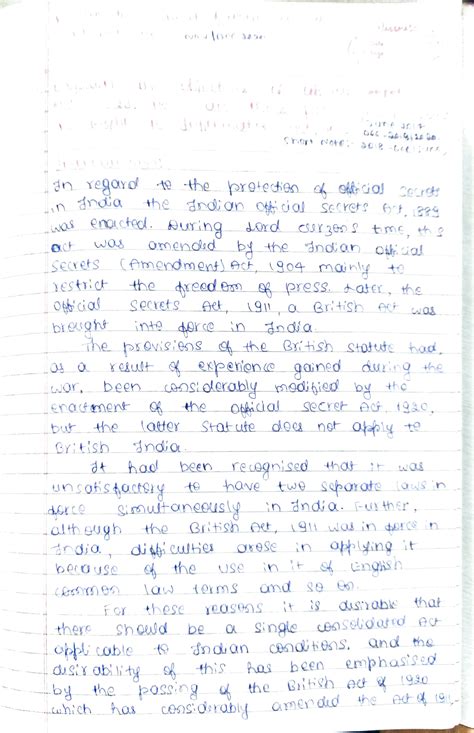 Nov/Dec 2020
June 2017
Short Note:
In regard to the protection of official secrets
in India the Indian official secrets Act, 1889
was enacted. During Lord curzons time, this
act was amended by the Indian official
secrets (Amendment) Act, 1904 mainly to
restrict the freedom of press. Later, the
official secrets Act, 1911, a British Act was
brought into force in India.
The provisions of the British statute had,
as a result of experience gained during the
war, been considerably modified by the
enactment of the official secret Act, 1920,
but the latter statute does not apply to
British India.
It had been recognised that it was
unsatisfactory to have two separate laws in
force simultaneously in India. Further,
although the British Act, 1911 was in force in
India, difficulties arose in applying it
because of the use in it of English
common law terms and so on.
For these reasons it is disirable that
there should be a single consolidated Act
applicable to Indian conditions, and the
disirability of this has been emphasised
by the passing of the British Act of 1920
which has considirably amended the Act of 1911.